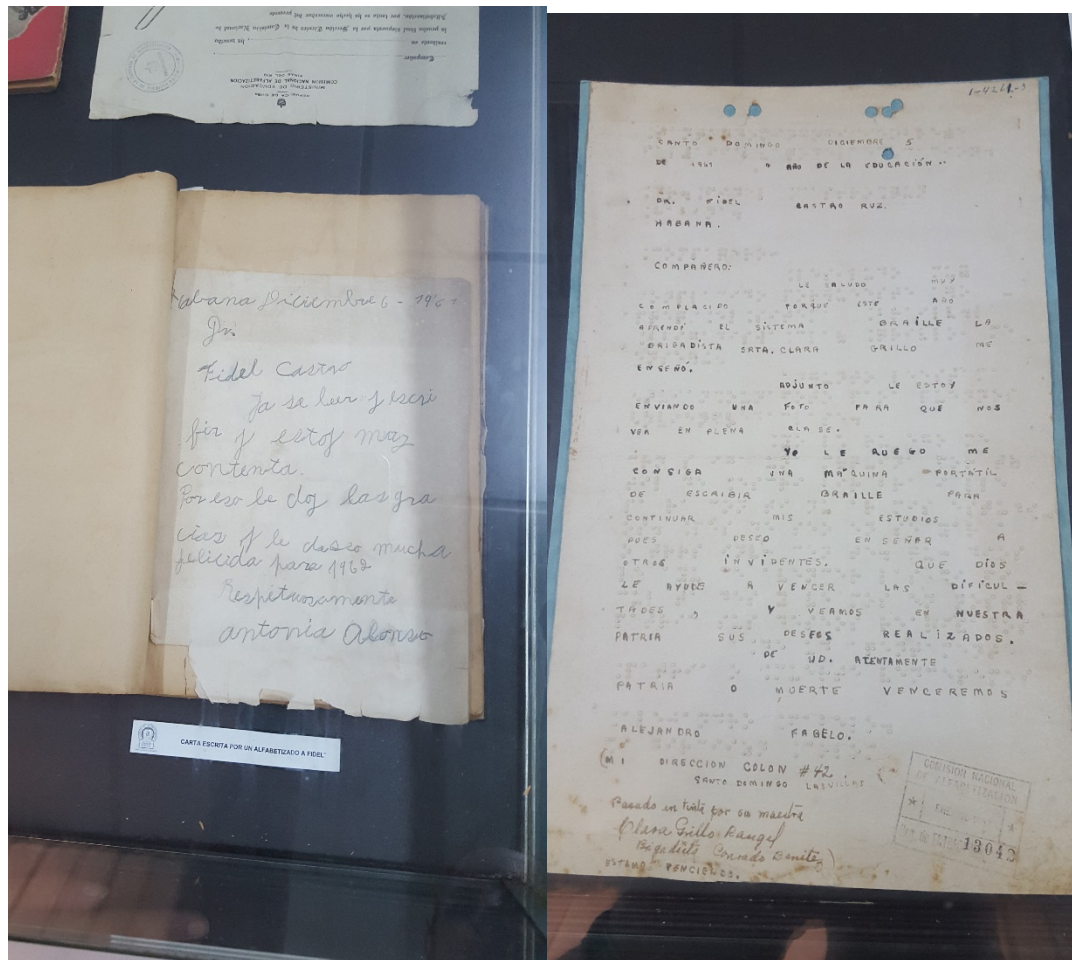 REPUBLICA DE CUBA
MINISTERIO DE EDUCACION
COMISION NACIONAL DE ALFABETIZACION
Compañero
residente en
la prueba final dispuesta por la Sección Técnica de la Comisión Nacional de
Alfabetización,
Habana Diciembre 6 - 1961
Dr.
Fidel Castro
Ja se leer y escri
bir y estoy muy
contenta.
Por eso le doy las gra
cias y le deseo mucha
felicida para 1962
Respetuosamente
antonia Alonso
CARTA ESCRITA POR UN ALFABETIZADO A FIDEL
SANTO DOMINGO DICIEMBRE 5
DE 1961 " AÑO DE LA EDUCACIÓN"
DR. FIDEL CASTRO RUZ.
HABANA.
COMPAÑERO:
LE SALUDO MUY
COMPLACIDO PORQUE ESTE AÑO
APRENDÍ EL SISTEMA BRAILLE LA
BRIGADISTA SRTA. CLARA GRILLO ME
ENSEÑÓ.
ADJUNTO LE ESTOY
ENVIANDO UNA FOTO PARA QUE NOS
VEA EN PLENA CLASE.
YO LE RUEGO ME
CONSIGA UNA MÁQUINA PORTÁTIL
DE ESCRIBIR BRAILLE PARA
CONTINUAR MIS ESTUDIOS
PUES DESEO ENSEÑAR A
OTROS INVIDENTES. QUE DIOS
LE AYUDE A VENCER LAS DIFICUL-
TADES, Y VEAMOS EN NUESTRA
PATRIA SUS DESEOS REALIZADOS.
DE UD. ATENTAMENTE
PATRIA O MUERTE VENCEREMOS
ALEJANDRO FABELO.
(MI DIRECCION COLON #42.
SANTO DOMINGO LAS VILLAS
Pasado en tinta por su maestra
Clara Grillo Rangel
Brigadista Conrado Benitez)
ESTAMOS VENCIENDO.
COMISION NACIONAL
DE ALFABETIZACIÓN
13042